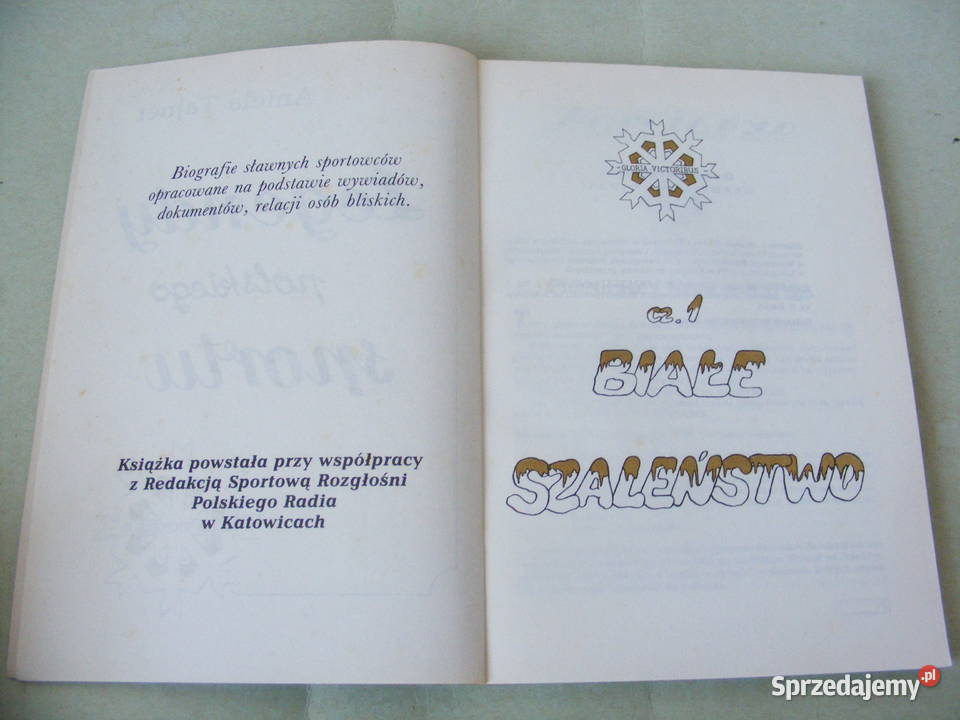 Biografie sławnych sportowców
opracowane na podstawie wywiadów,
dokumentów, relacji osób bliskich.
Książka powstała przy współpracy
z Redakcją Sportową Rozgłośni
Polskiego Radia
w Katowicach
GLORIA VICTORIBUS
cz. 1
BIAŁE
SZALEŃSTWO
Aniela Tajner
Legendy
polskiego
sportu
Sprzedajemy.pl